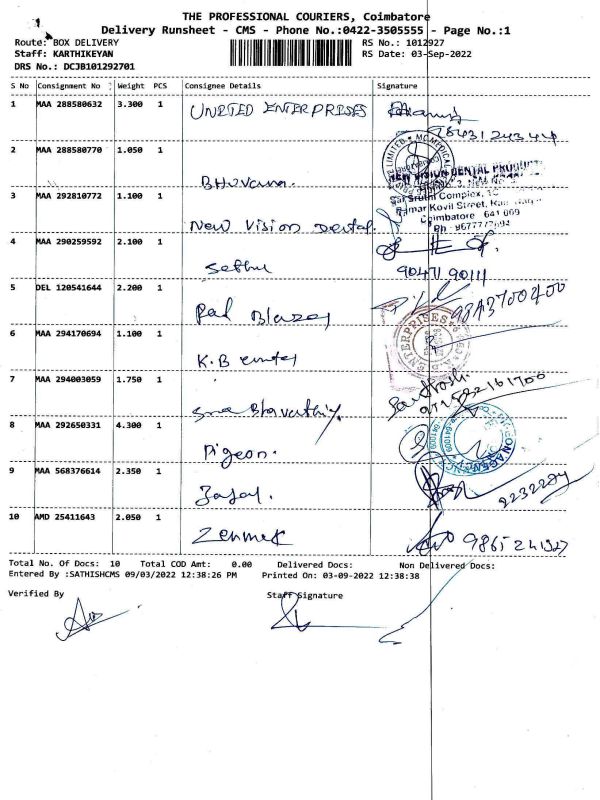 THE PROFESSIONAL COURIERS, Coimbatore
Delivery Runsheet - CMS - Phone No.:0422-3505555 - Page No.:1
Route: BOX DELIVERY RS No.: 1012927
Staff: KARTHIKEYAN RS Date: 03-Sep-2022
DRS No.: DCJB101292701
S No Consignment No Weight PCS Consignee Details Signature
1 MAA 288580632 3.300 1 UNITED ENTERPRISES
2 MAA 288580770 1.050 1 Bhuvana.
NEW VISION DENTAL
3 MAA 292810772 1.100 1 New Vision Dental.
Sai Sruthi Complex,
Kovil Street,
Coimbatore 641 009
4 MAA 290259592 2.100 1 Sethu
90471 90111
5 DEL 120541644 2.200 1 9843700400
ENTERPRISES
6 MAA 294170694 1.100 1 K.B
Santhosh.
7 MAA 294003059 1.750 1
8 MAA 292650331 4.300 1 Pigeon.
PIGEON AGENCY
9 MAA 568376614 2.350 1
2232284
10 AMD 25411643 2.050 1
Total No. Of Docs: 10 Total COD Amt: 0.00 Delivered Docs: Non Delivered Docs:
Entered By :SATHISHCMS 09/03/2022 12:38:26 PM Printed On: 03-09-2022 12:38:38
Verified By Staff Signature